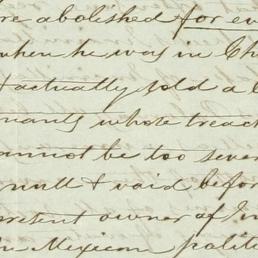 re abolished for ev
when he was in Ch
actually sold a
nants whose treac
cannot be too sever
null & void befor
present owner of
n Mexican polite